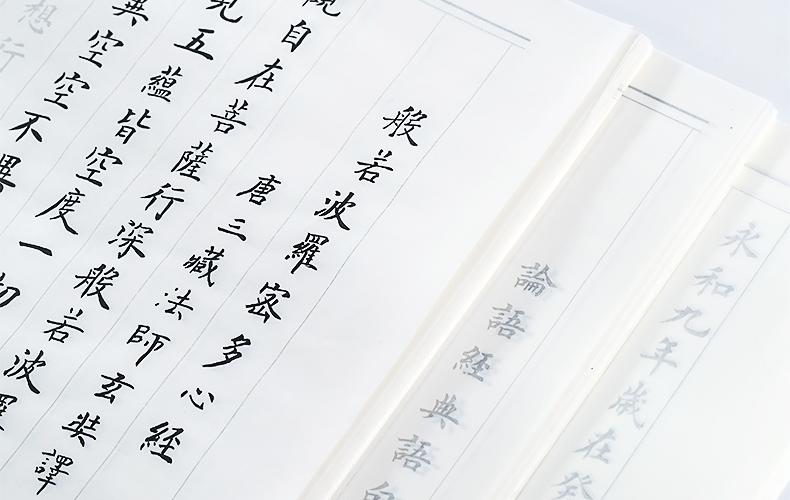 永和九年歲在癸
論語經典語
般若波羅密多心經
唐三藏法師玄奘譯
觀自在菩薩行深般若波羅
見五蘊皆空度一切
異空空不異
想行